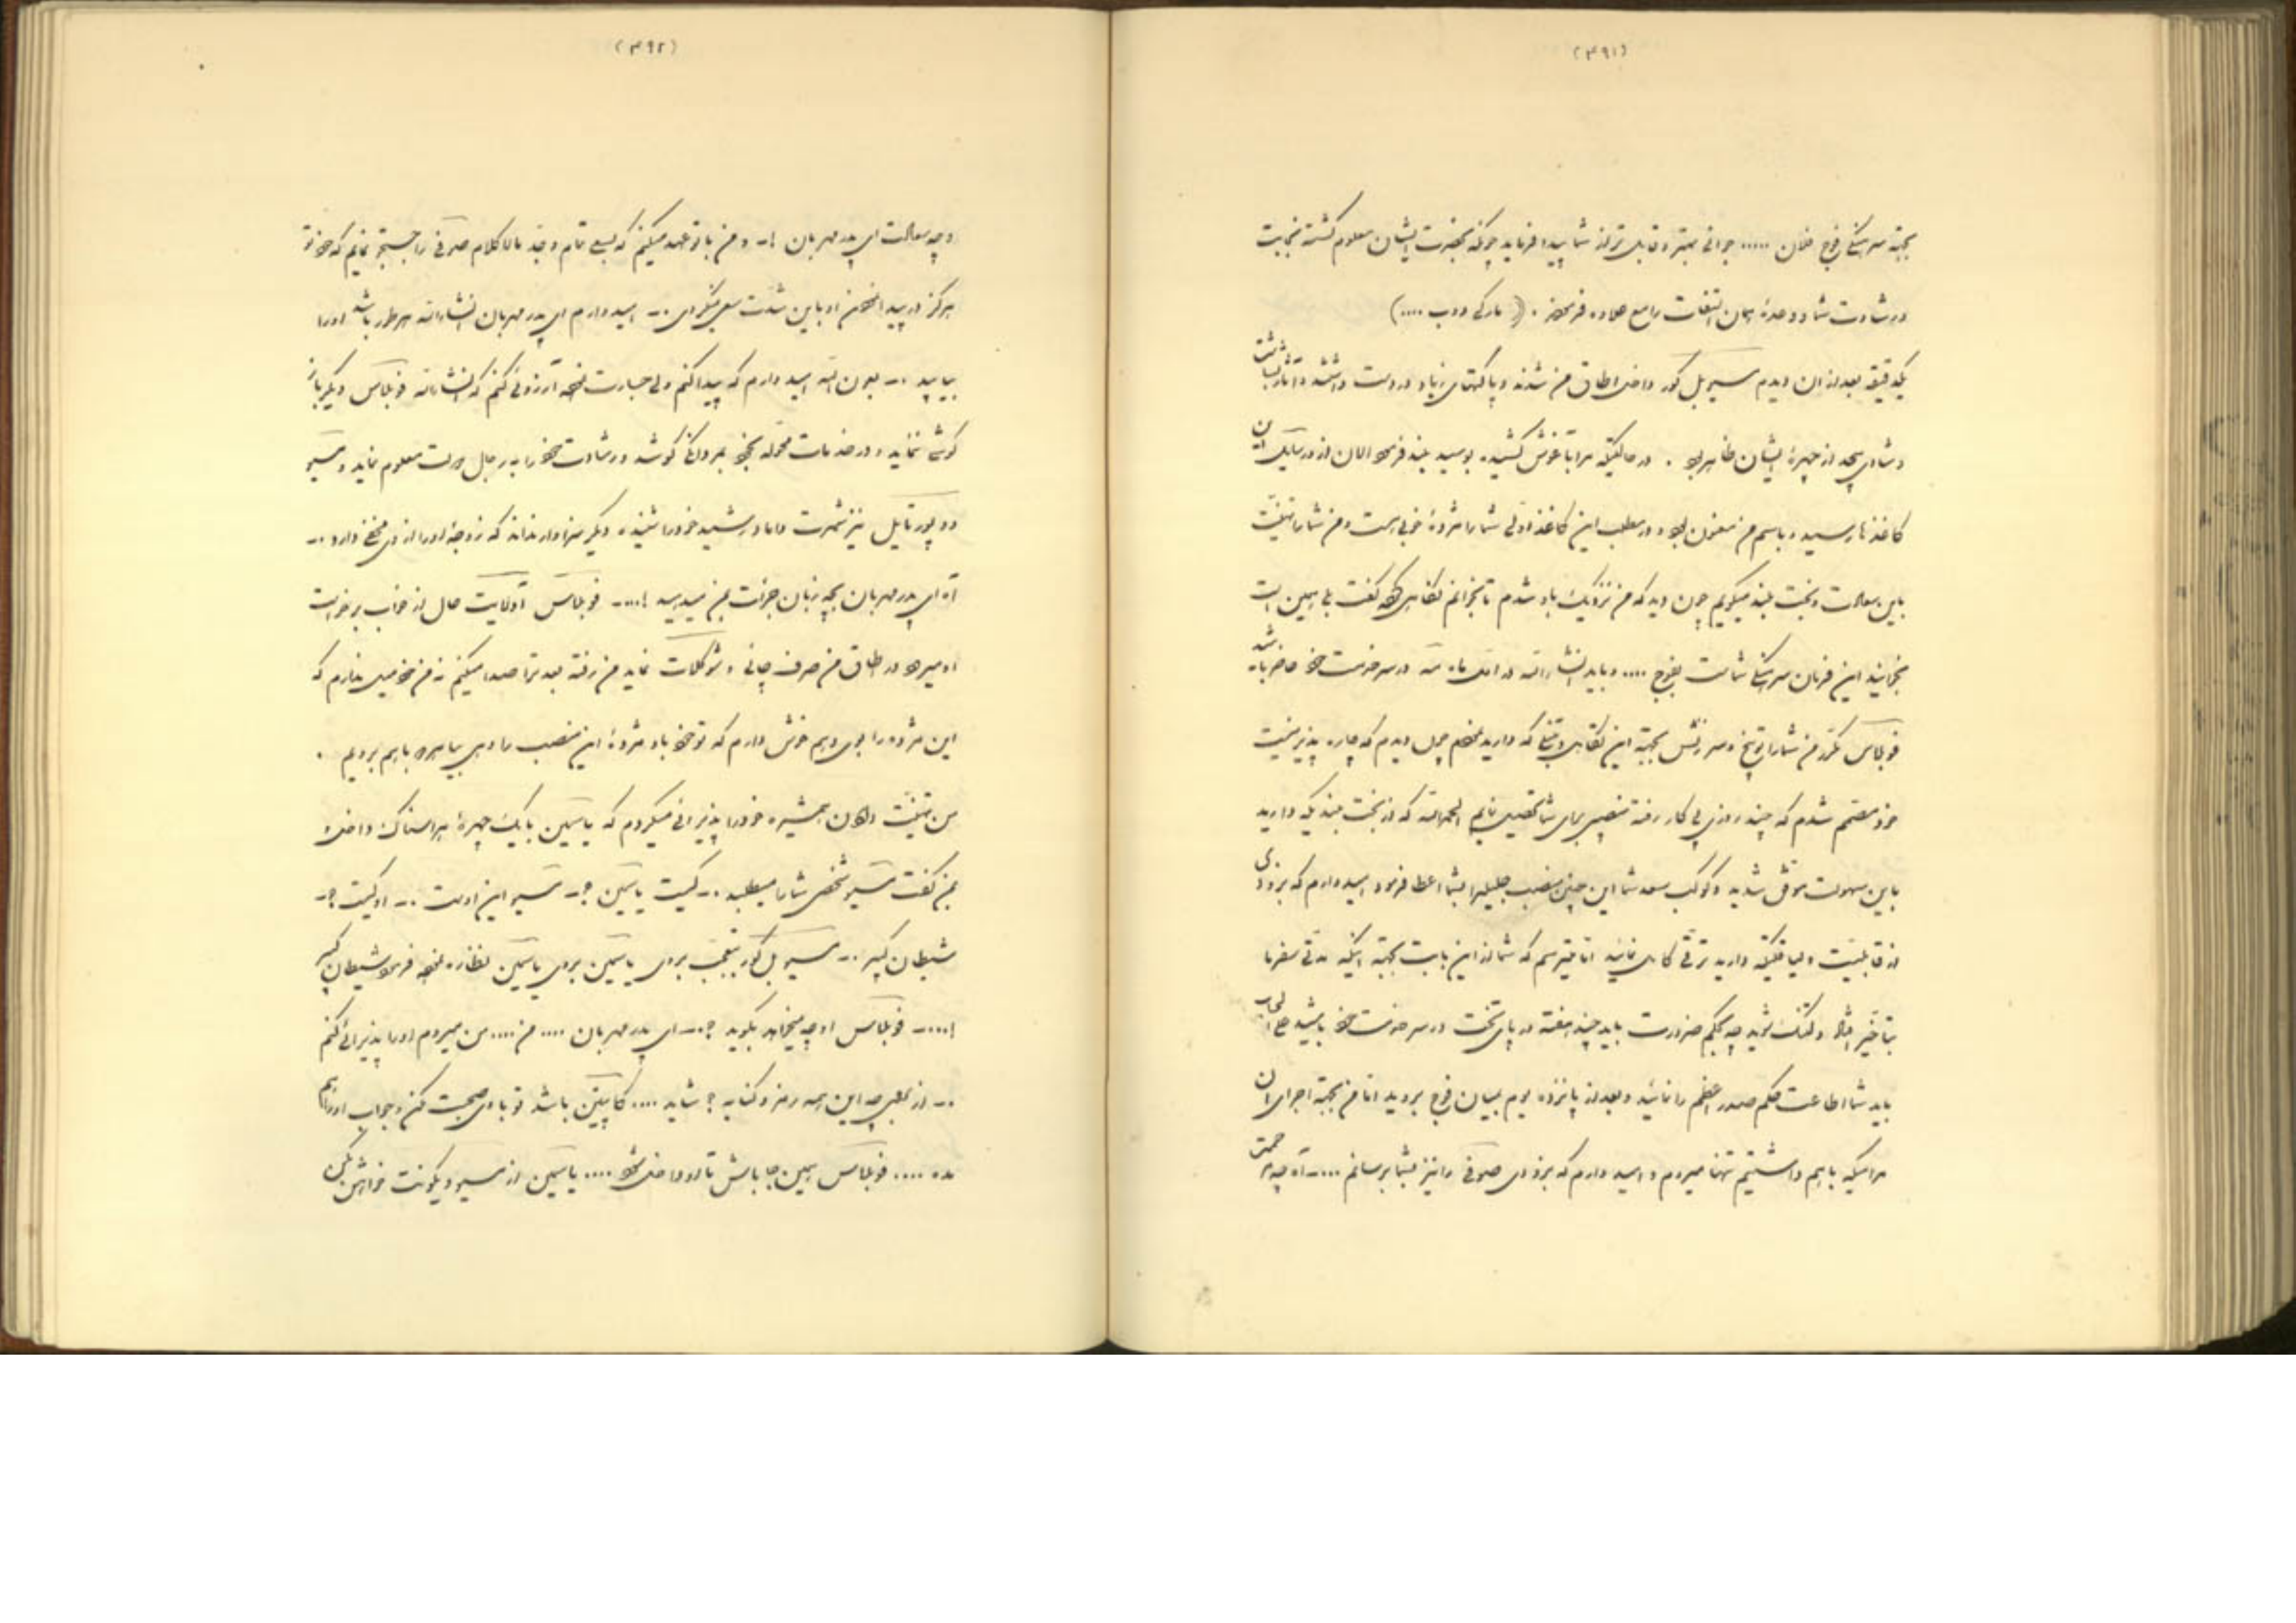 (۳۹۱)
بجهة سرهنگی فوج فلان ..... جوانی بهتر و قابل‌تر از شما پیدا فرماید چونکه بحضرت ایشان معلوم گشته نجابت
و رشادت شما و وعدهٔ همان التفات را مع علاوه فرمودند . (مارکی دوب ....)
یکدقیقه بعد از ان دیدم مسیو بل کور داخل اطاق من شدند و پاکتهای زیاد در دست داشتند و آثار بشاشت
و شادی بیحد از چهرهٔ ایشان ظاهر بود . در حالتیکه مرا باغوش کشیده بوسید بلند فرمود الان از ورسایل این
کاغذها رسیده باسم من معنون بود و در مطلب این کاغذ اولی شما را مژدهٔ خوبی است و من شما را تهنیت
باین سعادت و بخت بلند میگویم چون دید که من نزدیک باو شدم تا بخوانم نگاهی کرده گفت بلی همین است
بخوانید این فرمان سرهنگی شماست بفوج .... و باید انشاءالله در اول ماه مه در سر خدمت خود حاضر باشید
فوبلاس مکرر من شما را توبیخ و سرزنش بجهة این که دارید دیدم که چاره پذیر نیست
خود مصمم شدم که چند روزی پی کار رفته منصبی برای شما تحصیل نمایم الحمدالله که از بخت بلندیکه دارید
باین سهولت موفق شدید و کوکب سعد شما این چنین منصب جلیل را بشما اعطا فرمود امیدوارم که بزودی
از قابلیت و لیاقتیکه دارید ترقی کامل نمائید اما میترسم که شما از این بابت بجهة اینکه مدتی سفر ما
بتأخیر افتد دلتنگ شوید چه بحکم ضرورت باید چند هفته در پای تخت در سر خدمت خود باشید
باید شما اطاعت حکم صدر اعظم را نمائید و بعد از پانزده یوم بمیان فوج بروید اما من بجهة اجرای ان
مرامیکه باهم داشتیم تنها میروم و امیدوارم که بزودی صوفی را نیز بشما برسانم ....- آه چه مرحمت
(۳۹۲)
و چه سعادت ای پدر مهربان !- و من با تو عهد میکنم که بسعی تمام و جد مالاکلام صوفی را جستجو نمایم که خود تو
هرگز در پیدا نمودن او باین شدت سعی نمیکردی .- امیدوارم ای پدر مهربان انشاءالله هر طور باشد او را
بیابید .- بعون الله امیدوارم که پیدا کنم ولی جسارت نموده آرزو می کنم که انشاءالله فوبلاس دیگر
کوشی نماید و در خدمات محوله بخود بمردانگی کوشد و رشادت خود را بر رجال دولت معلوم نماید و مسیو
دو پورتایل نیز شهرت داماد رشید خود را شنیده دیگر سزاوار نداند که زوجهٔ او را از وی مخفی دارد .-
آه ای پدر مهربان بچه زبان جرأت بمن میدهید !...- فوبلاس آدلایت حال از خواب برخواست
او میرود در اطاق من صرف چائی و شوکلات نماید من رفته بعد ترا صدا میکنم نه من خود میل ندارم که
این مژده را بوی دهم خوش دارم که تو خود باو مژدهٔ این منصب را دهی بیا همراه باهم برویم .
من تهنیت دادن همشیره خود را پذیرائی میکردم که یاسمین با یک چهرهٔ هراسناک داخل شده
بمن گفت مسیو شخصی شما را میطلبد .- کیست یاسمین ؟- مسیو این اوست .- او کیست ؟-
شیطان کبیر .- مسیو بل کور بتعجب بروی یاسمین نظاره نموده فرمود شیطان کبیر
!....- فوبلاس او چه میخواهد بگوید ؟.- ای پدر مهربان .... من .... من میروم او را پذیرائی کنم
.- از بهر چه این همه رمز و کنایه ؟ شاید .... کاپیتین باشد تو با وی صحبت مکن و جواب او را هم
مده .... فوبلاس همین جا باش تا او داخل شود .... یاسمین از مسیو دیکونت خواهش بکن